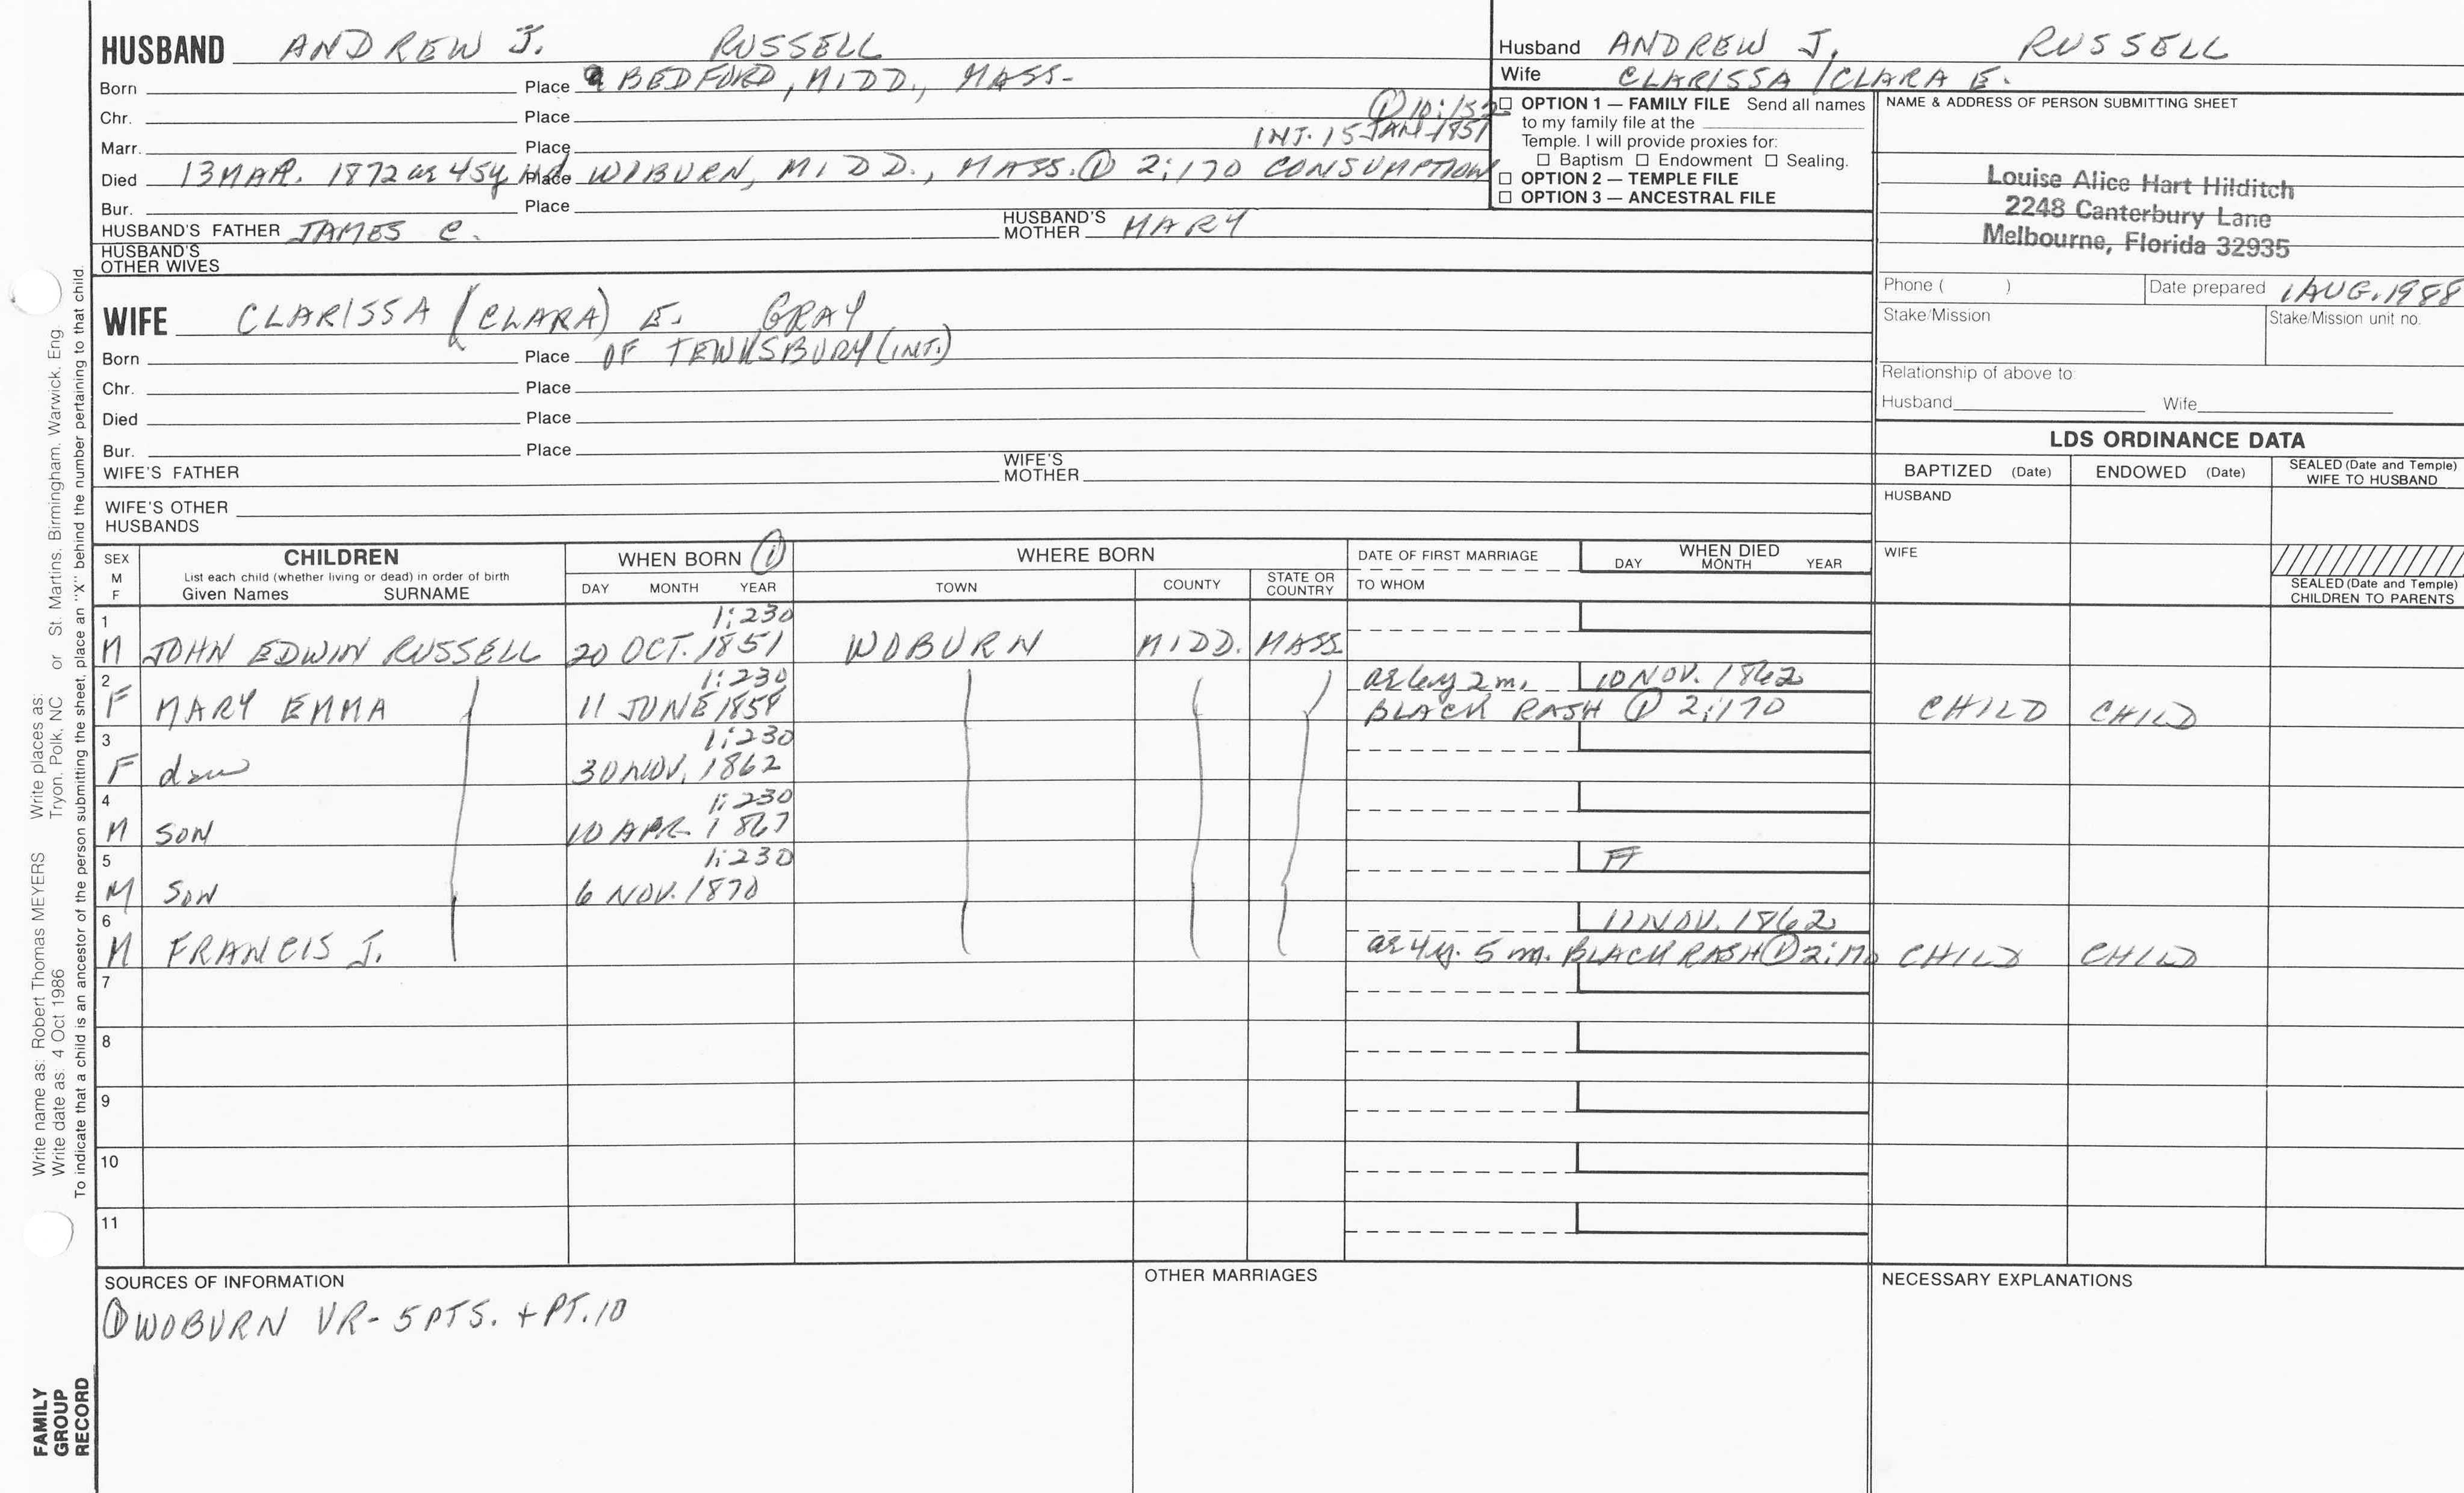 HUSBAND ANDREW J. RUSSELL
Born Place BEDFORD, MIDD., MASS-
Chr. Place ① 10:152
Marr. Place INT. 15 JAN 1851
Died 13 MAR. 1872 ae 45y Place WOBURN, MIDD., MASS. ① 2:170 CONSUMPTION
Bur. Place
HUSBAND'S FATHER JAMES C. HUSBAND'S MOTHER MARY
HUSBAND'S OTHER WIVES
WIFE CLARISSA (CLARA) E. GRAY
Born Place OF TEWKSBURY (INT.)
Chr. Place
Died Place
Bur. Place
WIFE'S FATHER WIFE'S MOTHER
WIFE'S OTHER HUSBANDS
Husband ANDREW J. RUSSELL
Wife CLARISSA /CLARA E.
☐ OPTION 1 — FAMILY FILE Send all names
to my family file at the
Temple. I will provide proxies for:
☐ Baptism ☐ Endowment ☐ Sealing.
☐ OPTION 2 — TEMPLE FILE
☐ OPTION 3 — ANCESTRAL FILE
NAME & ADDRESS OF PERSON SUBMITTING SHEET
Louise Alice Hart Hilditch
2248 Canterbury Lane
Melbourne, Florida 32935
Phone ( ) Date prepared 1 AUG. 1988
Stake/Mission Stake/Mission unit no.
Relationship of above to:
Husband Wife
LDS ORDINANCE DATA
BAPTIZED (Date) ENDOWED (Date) SEALED (Date and Temple) WIFE TO HUSBAND
HUSBAND
WIFE
SEALED (Date and Temple)
CHILDREN TO PARENTS
SEX M F
CHILDREN
List each child (whether living or dead) in order of birth
Given Names SURNAME
WHEN BORN ①
DAY MONTH YEAR
WHERE BORN
TOWN COUNTY STATE OR COUNTRY
DATE OF FIRST MARRIAGE
TO WHOM
WHEN DIED
DAY MONTH YEAR
1 1:230
M JOHN EDWIN RUSSELL 20 OCT. 1851 WOBURN MIDD. MASS.
2 1:230 ae 6y 2m. 10 NOV. 1862
F MARY EMMA 11 JUNE BLACK RASH ① 2:170 CHILD CHILD
3 1:230
F dau 30 NOV. 1862
4 1:230
M SON 10 APR. 1867
5 1:230
M SON 6 NOV. 1870
6 11 NOV. 1862
M FRANCIS J. ae 4y. 5 m. BLACK RASH ① 2:170 CHILD CHILD
7
8
9
10
11
SOURCES OF INFORMATION
① WOBURN VR- 5 PTS. + PT. 10
OTHER MARRIAGES
NECESSARY EXPLANATIONS
Write name as: Robert Thomas MEYERS Write places as:
Write date as: 4 Oct 1986 Tryon, Polk, NC or St. Martins, Birmingham, Warwick, Eng
To indicate that a child is an ancestor of the person submitting the sheet, place an "X" behind the number pertaining to that child.
FAMILY
GROUP
RECORD